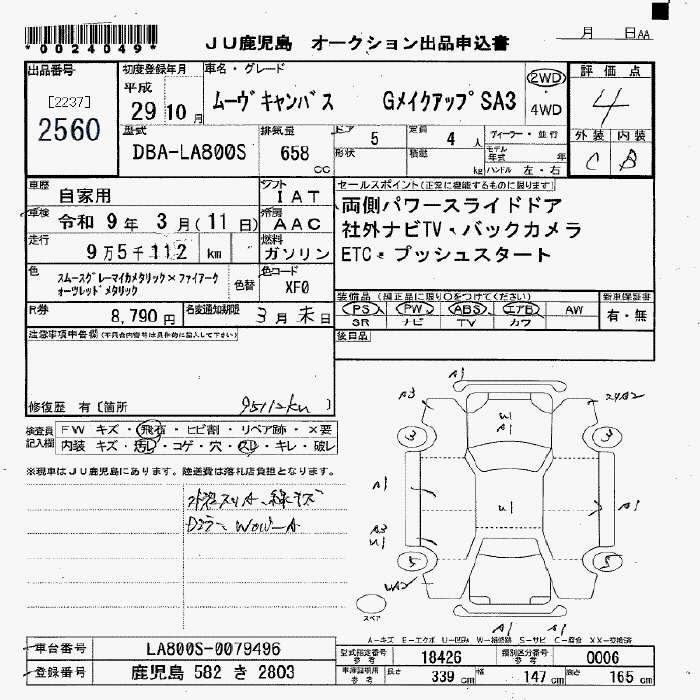 *0024049*
JU鹿児島 オークション出品申込書
月 日AA
出品番号
[2237]
2560
初度登録年月
平成
29 10月
車名・グレード
ムーヴキャンバス GメイクアップSA3
2WD
・
4WD
評価点
4
外装 内装
C B
型式
DBA-LA800S
排気量
658
CC
ドア 5
形状
定員 4 人
積載 kg
ディーラー・並行
モデル年式 年
ハンドル 左・右
車歴 自家用
シフト IAT
車検 令和 9年 3月(11日)
冷房 AAC
走行 9万5千112 km
燃料 ガソリン
色 スムースグレーマイカメタリック×ファイアークォーツレッドメタリック
色替
色コード XF0
R券 8,790円
名変通知期限 3月末日
セールスポイント(正常に機能するものに限ります)
両側パワースライドドア
社外ナビTV・バックカメラ
ETC・プッシュスタート
装備品(純正品に限り○をつけてください)
PS PW ABS エアB AW
SR ナビ TV カワ
新車保証書
有・無
後日品
注意事項申告欄
修復歴 有〔箇所 〕
95112km
検査員記入欄
FW キズ・飛石・ヒビ割・リペア跡・×要
内装 キズ・汚レ・コゲ・穴・スレ・キレ・破レ
※現車はJU鹿児島にあります。陸送費は落札店負担となります。
A1
A3
U1
A1
24A2
3
3
A1
U1
A1
A3
U1
5
5
A1
A1
スペア
A-キズ E-エクボ U-凹み W-補修跡 S-サビ C-腐食 XX-交換済
車台番号 LA800S-0079496
登録番号 鹿児島 582 き 2803
型式指定番号 参考 18426
類別区分番号 参考 0006
車庫証明用 参考 長さ 339cm 幅 147cm 高さ 165cm